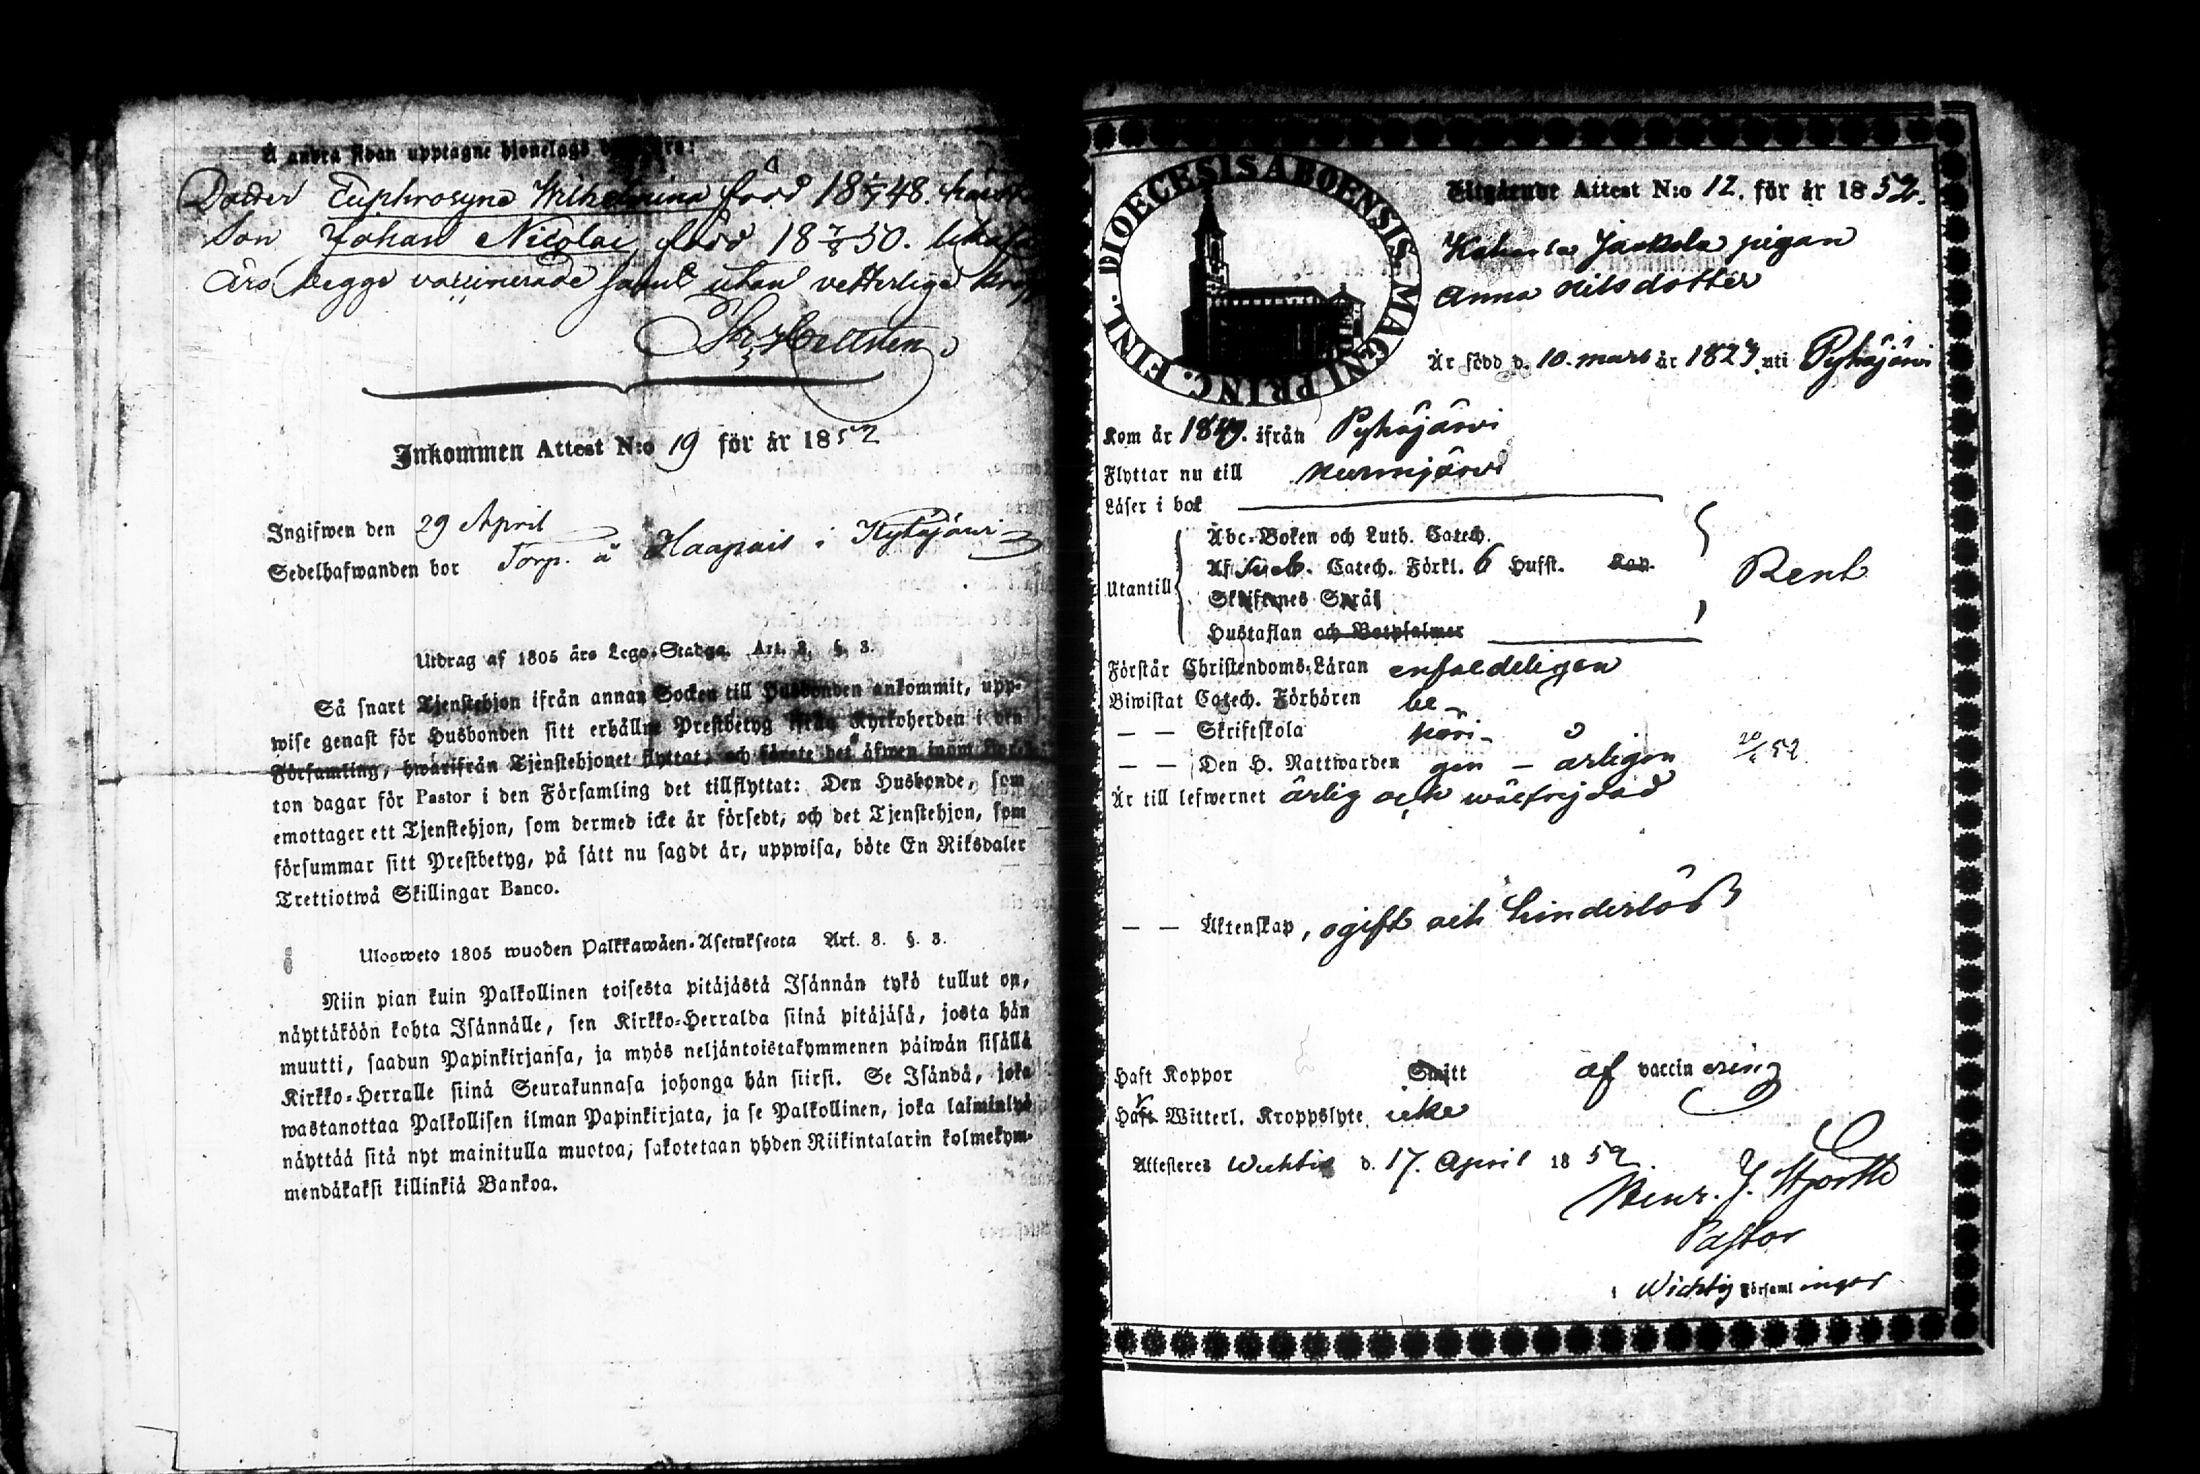 Å andra sidan upptagne hjonelags
Dotter Euphrosyne Wilhelmina född 18 48.
Son Johan Nicolai född 18 7/8 50.
års begge vaccinerade samt utan vetterliga
Inkommen Attest N:o 19 för år 1852
Ingifwen den 29 April
Sedelhafwanden bor Torp. å Haapais i Kytäjärvi
Utdrag af 1805 års Lego-Stadga. Art. 8. §. 3.
Så snart Tjenstehjon ifrån annan Socken till Husbonden ankommit, upp-
wise genast för Husbonden sitt erhållne Prestbetyg ifrån Kyrkoherden i den
Församling, hwarifrån Tjenstehjonet flyttat; och förete det äfwen inom fjor-
ton dagar för Pastor i den Församling det tillflyttat: Den Husbonde, som
emottager ett Tjenstehjon, som dermed icke är försedt, och det Tjenstehjon, som
försummar sitt Prestbetyg, på sätt nu sagdt är, uppwisa, böte En Riksdaler
Trettiotwå Skillingar Banco.
Ulosweto 1805 wuoden Palkkawäen-Asetuksesta Art. 8. §. 3.
Niin pian kuin Palkollinen toisesta pitäjästä Isännän tykö tullut on,
näyttäköön kohta Isännälle, sen Kirkko-Herralda siinä pitäjäsä, josta hän
muutti, saadun Papinkirjansa, ja myös neljäntoistakymmenen päiwän sisällä
Kirkko-Herralle siinä Seurakunnasa johonga hän siirsi. Se Isändä, joka
wastanottaa Palkollisen ilman Papinkirjata, ja se Palkollinen, joka laiminlyö
näyttää sitä nyt mainitulla muotoa; sakotetaan yhden Riikintalarin kolmekym-
mendäkaksi killinkiä Bankoa.
DIOECESIS ABOENSIS MAGNI PRINC. FINL.
Utgående Attest N:o 12. för år 1852.
Jaakola pigan
Anna Nilsdotter
Är född d. 10. mars år 1823. uti Pyhäjärvi
Kom år 1849. ifrån Pyhäjärvi
Flyttar nu till Nurmijärvi
Läser i bok
Utantill
Abc-Boken och Luth. Catech.
Af Sveb. Catech. Förkl. 6 Hufst. Kap.
Skriftenes Språk
Hustaflan och Botpsalmer
Rent
Förstår Christendoms-Läran enfaldeligen
Biwistat Catech. Förhören be-
— — Skriftskola höri-
— — Den H. Nattwarden gen – årligen 52
Är till lefwernet ärlig och wälfrejdad
— — Äktenskap, ogift och hinderlös
Haft Koppor Smitt af vaccinering
Haft Witterl. Kroppslyte icke
Attesteres Wichtis d. 17. April 1852.
Henr. J. Hjorth
Pastor
i Wichtis Församlingar